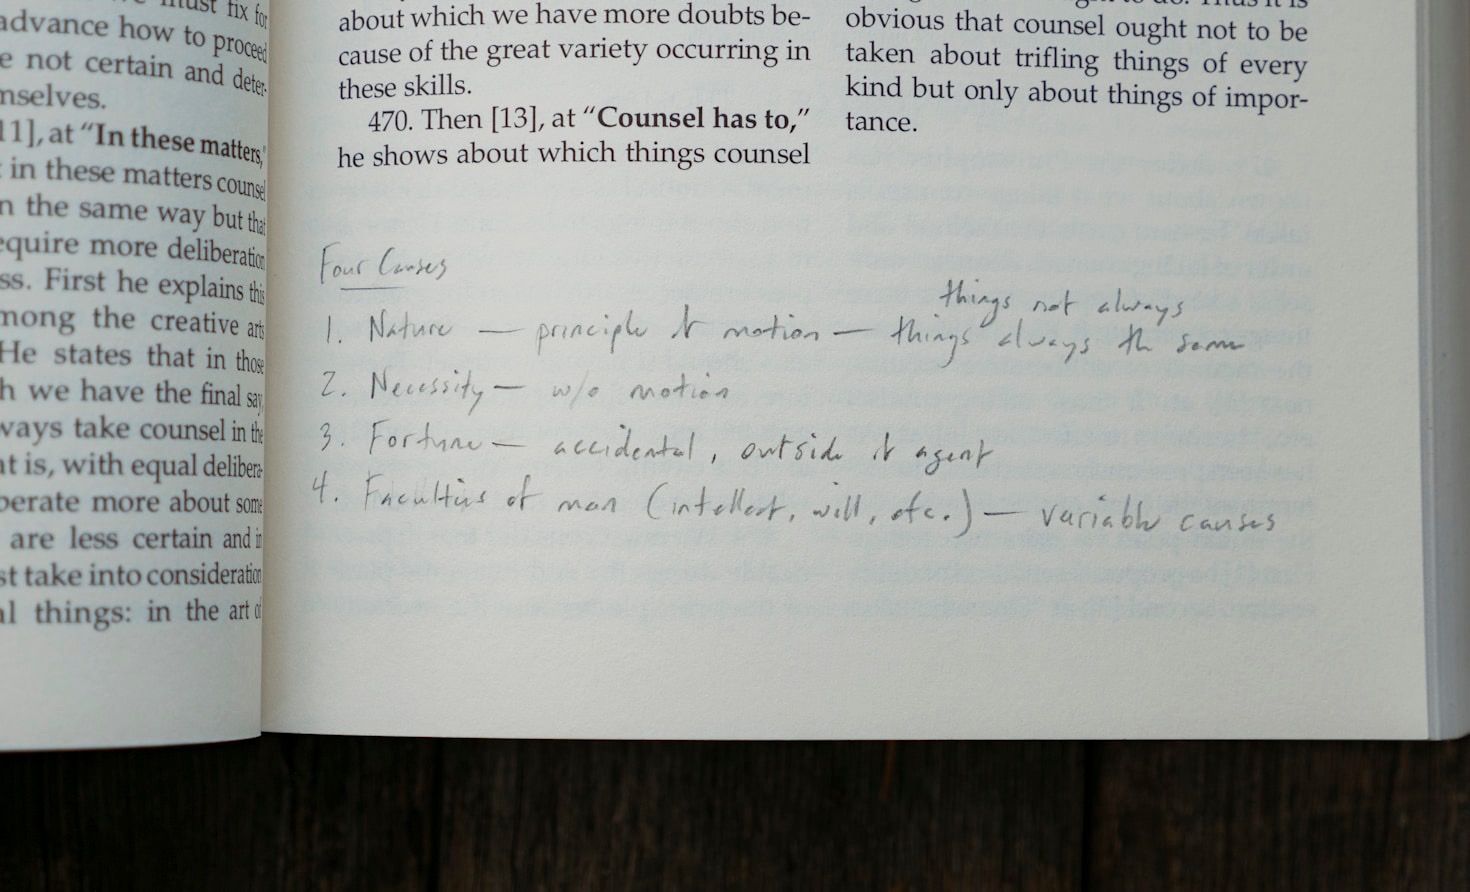 must fix for
advance how to proceed
e not certain and deter-
nselves.
11], at “In these matters,”
in these matters counsel
n the same way but that
equire more deliberation
ss. First he explains this
mong the creative arts
He states that in those
h we have the final say,
ways take counsel in the
at is, with equal delibera-
perate more about some
are less certain and in
st take into consideration
al things: in the art of
about which we have more doubts be-
cause of the great variety occurring in
these skills.
470. Then [13], at “Counsel has to,”
he shows about which things counsel
obvious that counsel ought not to be
taken about trifling things of every
kind but only about things of impor-
tance.
Four Causes
things not always
1. Nature — principle of motion — things always the same
2. Necessity — w/o motion
3. Fortune — accidental, outside agent
4. Faculties of man (intellect, will, etc.) — variable causes